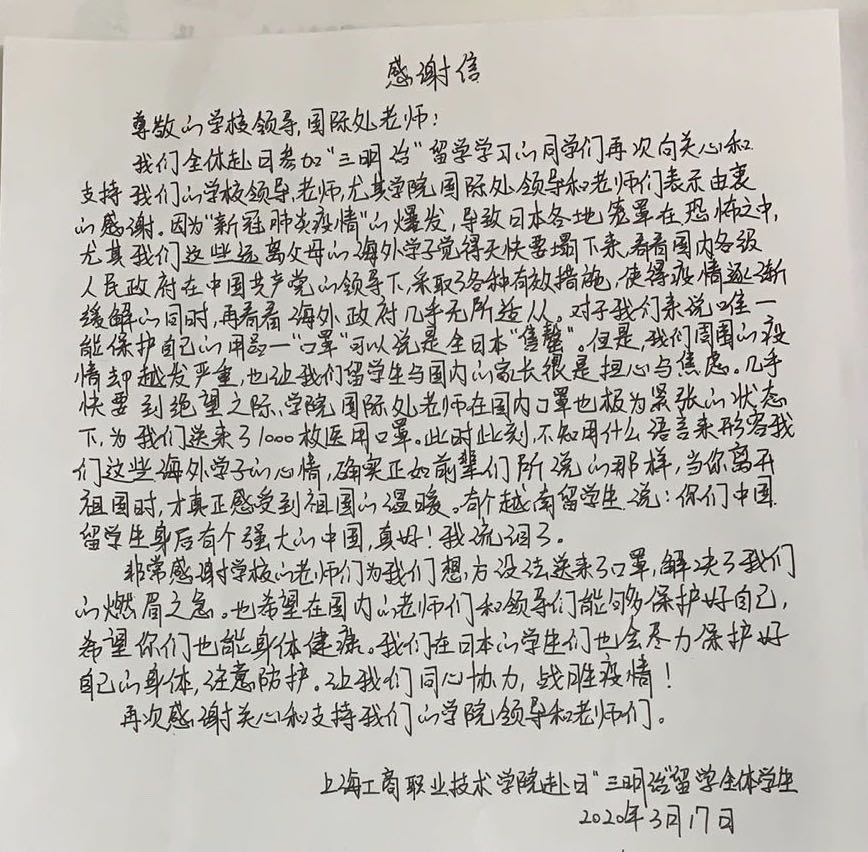 感谢信
尊敬的学校领导,国际处老师:
我们全体赴日参加“三明治”留学学习的同学们再次向关心和
支持我们的学校领导,老师,尤其学院国际处领导和老师们表示由衷
的感谢。因为“新冠肺炎疫情”的爆发,导致日本各地笼罩在恐怖之中,
尤其我们这些远离父母的海外学子觉得天快要塌下来,看看国内各级
人民政府在中国共产党的领导下,采取了各种有效措施,使得疫情逐渐
缓解的同时,再看看海外政府几乎无所适从。对于我们来说唯一
能保护自己的用品—“口罩”可以说是全日本“售罄”。但是,我们周围的疫
情却越发严重,也让我们留学生与国内的家长很是担心与焦虑。几乎
快要到绝望之际,学院国际处老师在国内口罩也极为紧张的状态
下,为我们送来了1000枚医用口罩。此时此刻,不知用什么语言来形容我
们这些海外学子的心情,确实正如前辈们所说的那样,当你离开
祖国时,才真正感受到祖国的温暖。有个越南留学生说:你们中国
留学生身后有个强大的中国,真好!我流泪了。
非常感谢学校的老师们为我们想方设法送来了口罩,解决了我们
的燃眉之急。也希望在国内的老师们和领导们能够多保护好自己,
希望你们也能身体健康。我们在日本的学生们也会尽力保护好
自己的身体,注意防护。让我们同心协力,战胜疫情!
再次感谢关心和支持我们的学院领导和老师们。
上海工商职业技术学院赴日“三明治”留学全体学生
2020年3月17日